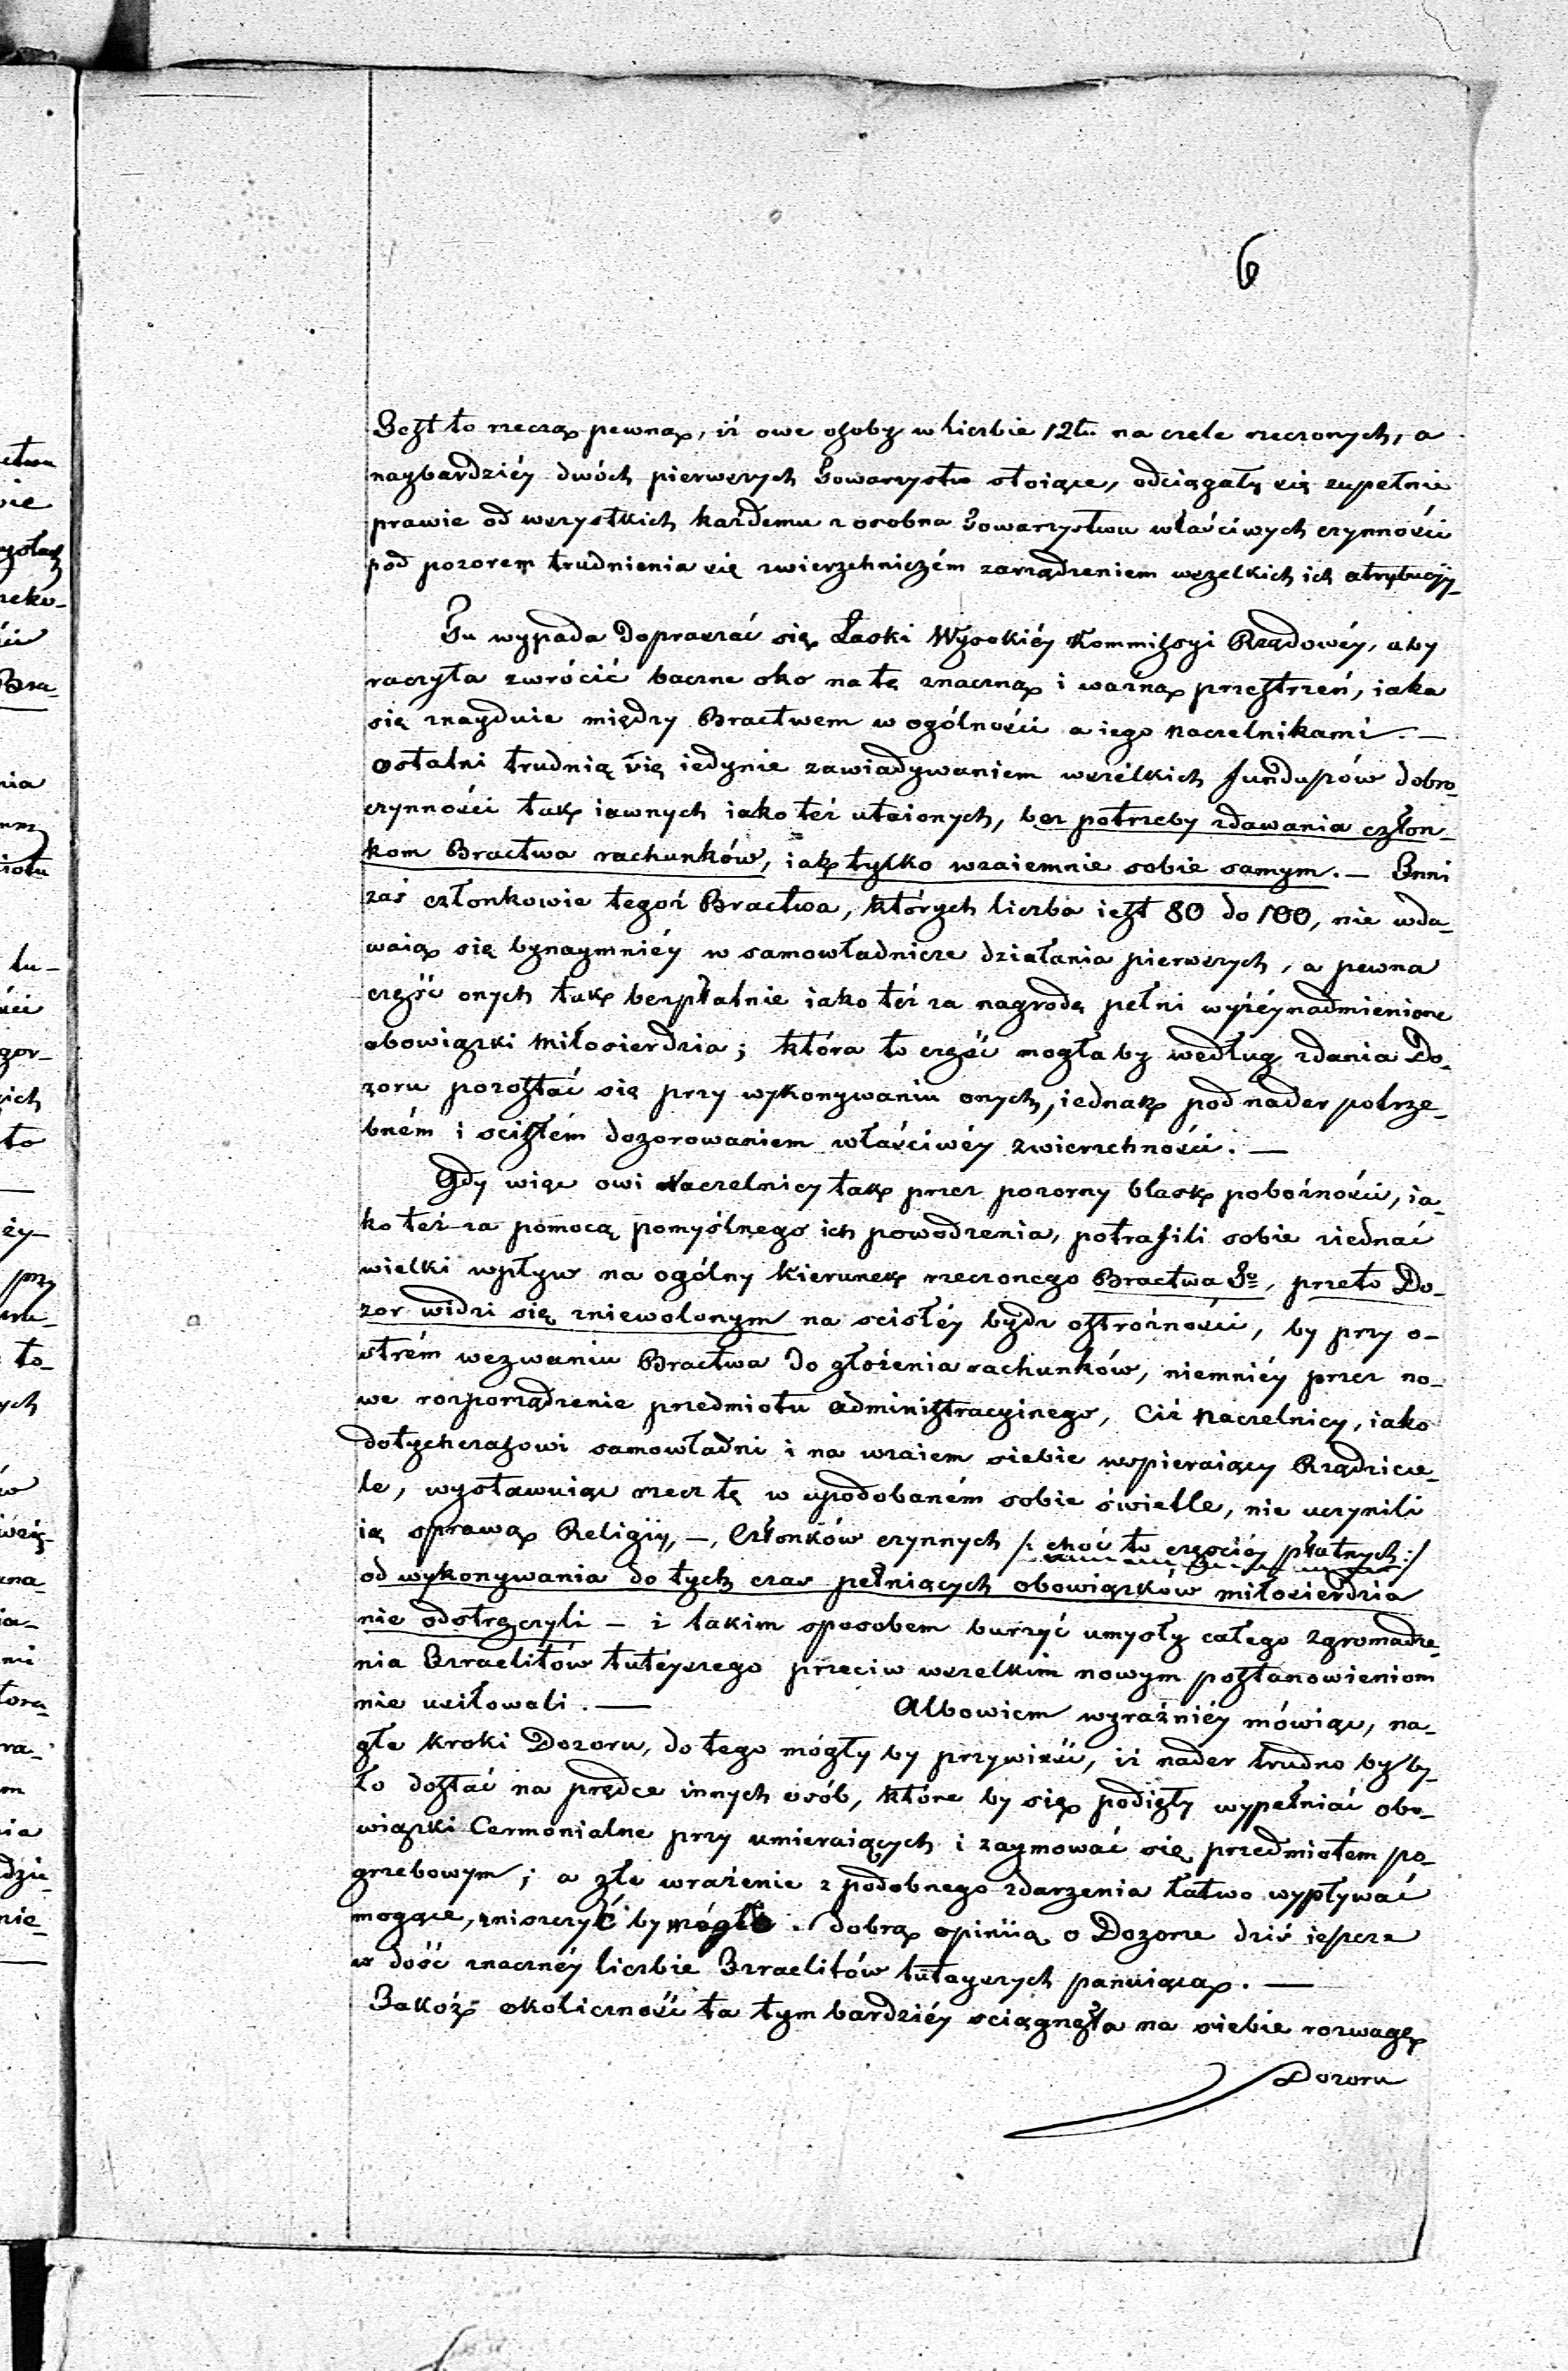 6
Jest to rzeczą pewną, iż owe osoby w liczbie 12tu na czele rzeczonych, a
naybardziéy dwóch pierwszych Towarzystw stoiące, odciągały się zupełnie
prawie od wszystkich każdemu z osobna Towarzystwu właściwych czynności
pod pozorem trudnienia się zwierzchniczém zarządzeniem wszelkich ich atrybucyj_
Tu wypada dopraszać się Łaski Wysokiéy Kommissyi Rządowéy, aby
raczyła zwrócić baczne oko na tę znaczną i ważną przestrzeń, iaka
się znayduie między Bractwem w ogólności a iego Naczelnikami. —
ostatni trudnią się iedynie zawiadywaniem wszélkich funduszów dobro_
czynności tak iawnych iako też utaionych, bez potrzeby zdawania człon_
kom Bractwa rachunków, iak tylko wzaiemnie sobie samym. — Inni
zaś członkowie tegoż Bractwa, których liczba iest 80 do 100, nie wda_
waią się bynaymniéy w samowładnicze działania pierwszych, a pewna
część onych tak bezpłatnie iako też za nagrodę pełni wyżéynadmienione
obowiązki Miłosierdzia; która to część mogła by według zdania Do_
zoru pozostać się przy wykonywaniu onych, iednak pod nader potrze_
bném i scisłém dozorowaniem właściwéy zwierzchności. —
Gdy więc owi Naczelnicy tak przez pozorny blask pobożności, ia_
ko też za pomocą pomyślnego ich powodzenia, potrafili sobie ziednać
wielki wpływ na ogólny kierunek rzeczonego Bractwa Sgo, przeto Do_
zor widzi się zniewolonym na scisłéy bydź ostrożności, by przy o_
strém wezwaniu Bractwa do złożenia rachunków, niemniéy przez no_
we rozporządzenie przedmiotu administracyinego, Ciż Naczelnicy, iako
dotychczasowi samowładni i na wzaiem siebie wspieraiący Rządzicie_
le, wystawuiąc rzecz tę w upodobaném sobie świetle, nie uczynili
ią sprawą Religiy, —, Członków czynnych /: choć to częściéy płatnych :/
od wykonywania do tych czas pełniących obowiązków miłosierdzia
nie odstręczyli — i takim sposobem burzyć umysły całego zgromadze_
nia Izraelitów tutéyszego przeciw wszelkim nowym postanowieniom
nie usiłowali. — Albowiem wyraźniéy mówiąc, na_
głe kroki Dozoru, do tego mógły by przywieść, iż nader trudno by by_
ło dostać na prędce innych osób, które by się podięły wypełniać obo_
wiązki Cermonialne przy umieraiących i zaymować się przedmiotem po_
grzebowym; a złe wrażenie z podobnego zdarzenia łatwo wypływać
mogące, zniszczyć by mógło dobrą opiniią o Dozorze dziś ieszcze
w dość znacznéy liczbie Izraelitów tutayszych panuiącą. —
Jakoż okoliczność ta tym bardziéy sciągnęła na siebie rozwagę
Dozoru